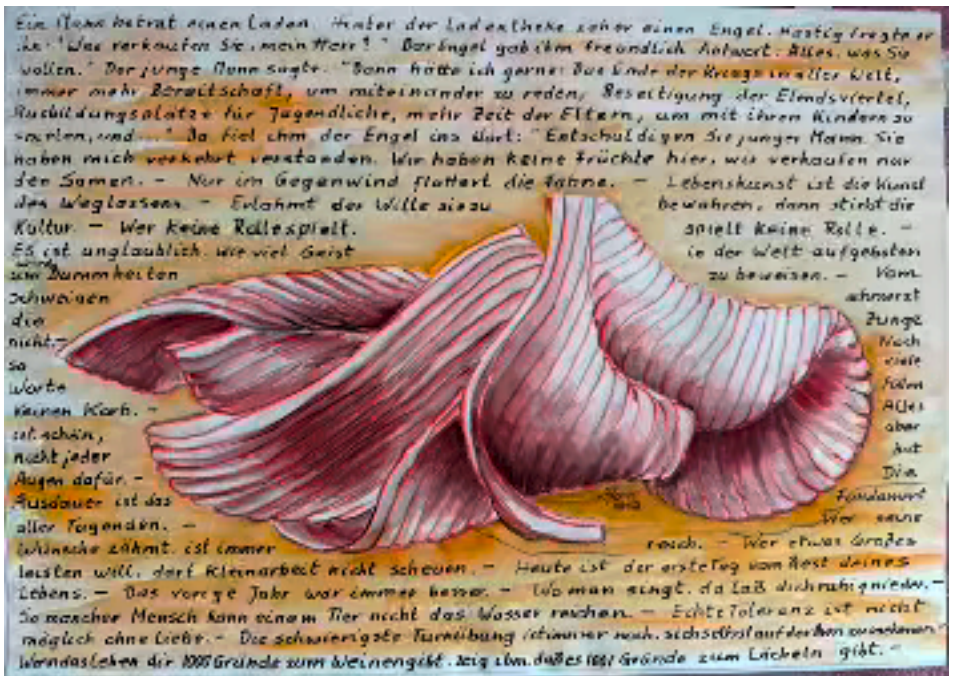 Ein Mann betrat einen Laden. Hinter der Ladentheke sah er einen Engel. Hastig fragte er
ihn: "Was verkaufen Sie, mein Herr?" Der Engel gab ihm freundlich Antwort: Alles, was Sie
wollen." Der junge Mann sagte: "Dann hätte ich gerne: Das Ende der Kriege in aller Welt,
immer mehr Bereitschaft, um miteinander zu reden, Beseitigung der Elendsviertel,
Ausbildungsplätze für Jugendliche, mehr Zeit der Eltern, um mit ihren Kindern zu
spielen, und ..." Da fiel ihm der Engel ins Wort: "Entschuldigen Sie junger Mann. Sie
haben mich verkehrt verstanden. Wir haben keine Früchte hier, wir verkaufen nur
den Samen. - Nur im Gegenwind flattert die Fahne. - Lebenskunst ist die Kunst
des Weglassens. - Erlahmt der Wille sie zu bewahren, dann stirbt die
Kultur. - Wer keine Rolle spielt, spielt keine Rolle. -
Es ist unglaublich, wie viel Geist in der Welt aufgeboten
um Dummheiten zu beweisen. - Vom
Schweigen schmerzt
die Zunge
nicht. - Nach
so viele
Worte füllen
keinen Korb. - Alles
ist schön, aber
nicht jeder hat
Augen dafür. - Die
Ausdauer ist das Fundament
aller Tugenden. - Wer seine
Wünsche zähmt, ist immer reich. - Wer etwas Großes
leisten will, darf Kleinarbeit nicht scheuen. - Heute ist der erste Tag vom Rest deines
Lebens. - Das vorige Jahr war immer besser. - Wo man singt, da laß dich ruhig nieder. -
So mancher Mensch kann einem Tier nicht das Wasser reichen. - Echte Toleranz ist nicht
möglich ohne Liebe. - Die schwierigste Turnübung ist immer noch, sich selbst auf den Arm zu nehmen.
Wenn das Leben dir 1000 Gründe zum Weinen gibt, zeig ihm, daß es 1001 Gründe zum Lächeln gibt. -